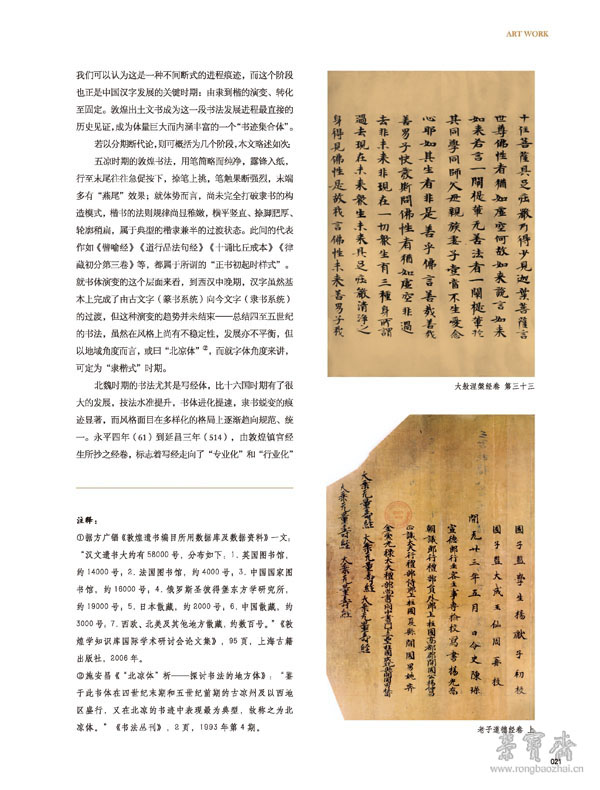 ART WORK
我们可以认为这是一种不间断式的进程痕迹，而这个阶段
也正是中国汉字发展的关键时期：由隶到楷的演变、转化
至固定。敦煌出土文书成为这一段书法发展进程最直接的
历史见证，成为体量巨大而内涵丰富的一个“书迹集合体”。
若以分期断代论，则可概括为几个阶段，本文略述如次：
五凉时期的敦煌书法，用笔简略而纯净，露锋入纸，
行至末尾往往急促按下，捺笔上挑，笔触果断强烈，末端
多有“燕尾”效果；就体势而言，尚未完全打破隶书的构
造模式，楷书的法则规律尚显稚嫩，横平竖直、捺脚肥厚、
轮廓稍扁，属于典型的楷隶兼半的过渡状态。此间的代表
作如《譬喻经》《道行品法句经》《十诵比丘戒本》《律
藏初分第三卷》等，都属于所谓的“正书初起时样式”。
就书体演变的这个层面来看，到西汉中晚期，汉字虽然基
本上完成了由古文字（篆书系统）向今文字（隶书系统）
的过渡，但这种演变的趋势并未结束——总结四至五世纪
的书法，虽然在风格上尚有不稳定性，发展亦不平衡，但
以地域角度而言，或曰“北凉体”②，而就字体角度来讲，
可定为“隶楷式”时期。
北魏时期的书法尤其是写经体，比十六国时期有了很
大的发展，技法水准提升，书体进化提速，隶书蜕变的痕
迹显著，而风格面目在多样化的格局上逐渐趋向规范、统
一。永平四年（61）到延昌三年（514），由敦煌镇官经
生所抄之经卷，标志着写经走向了“专业化”和“行业化”
注释：
①据方广锠《敦煌遗书编目所用数据库及数据资料》一文：
“汉文遗书大约有58000号，分布如下：1、英国图书馆，
约14000号；2、法国图书馆，约4000号；3、中国国家图
书馆，约16000号；4、俄罗斯圣彼得堡东方学研究所，
约19000号；5、日本散藏，约2000号；6、中国散藏，约
3000号；7、西欧、北美及其他地方散藏，约数百号。”《敦
煌学知识库国际学术研讨会论文集》，95页，上海古籍
出版社，2006年。
②施安昌《“北凉体”析——探讨书法的地方体》：“鉴
于此书体在四世纪末期和五世纪前期的古凉州及以西地
区盛行，又在北凉的书迹中表现最为典型，故称之为北
凉体。”《书法丛刊》，2页，1993年第4期。
十住菩薩具足莊嚴乃得少見迦葉菩薩言
世尊佛性者猶如虛空何故如來說言未來
如來若言一闡提輩无善法者一闡提輩於
其同學同師父母親族妻子豈當不生愛念
心耶如其生者非是善乎佛言善哉善哉
善男子快發斯問佛性者猶如虛空非過
去非未來非現在一切眾生有三種身所謂
過去現在未來眾生未來具足莊嚴清淨之
身得見佛性是故我言佛性未來善男子我
大般涅槃经卷 第三十三
國子監學生楊獻子初校
國子監大成王仙周再校
開元廿三年五月 日令史陳琛
宣德郎行主客主事專檢校寫書楊光喬
朝議郎行禮部員外郎上柱國高都郡開國公楊仲昌
正議大夫行禮部侍郎上柱國夏縣開國男姚弈
大乘无量壽經
大乘无量壽經
大乘无量壽經
大乘无量壽經
老子道德经卷 上
021
荣宝斋
www.rongbaozhai.cn